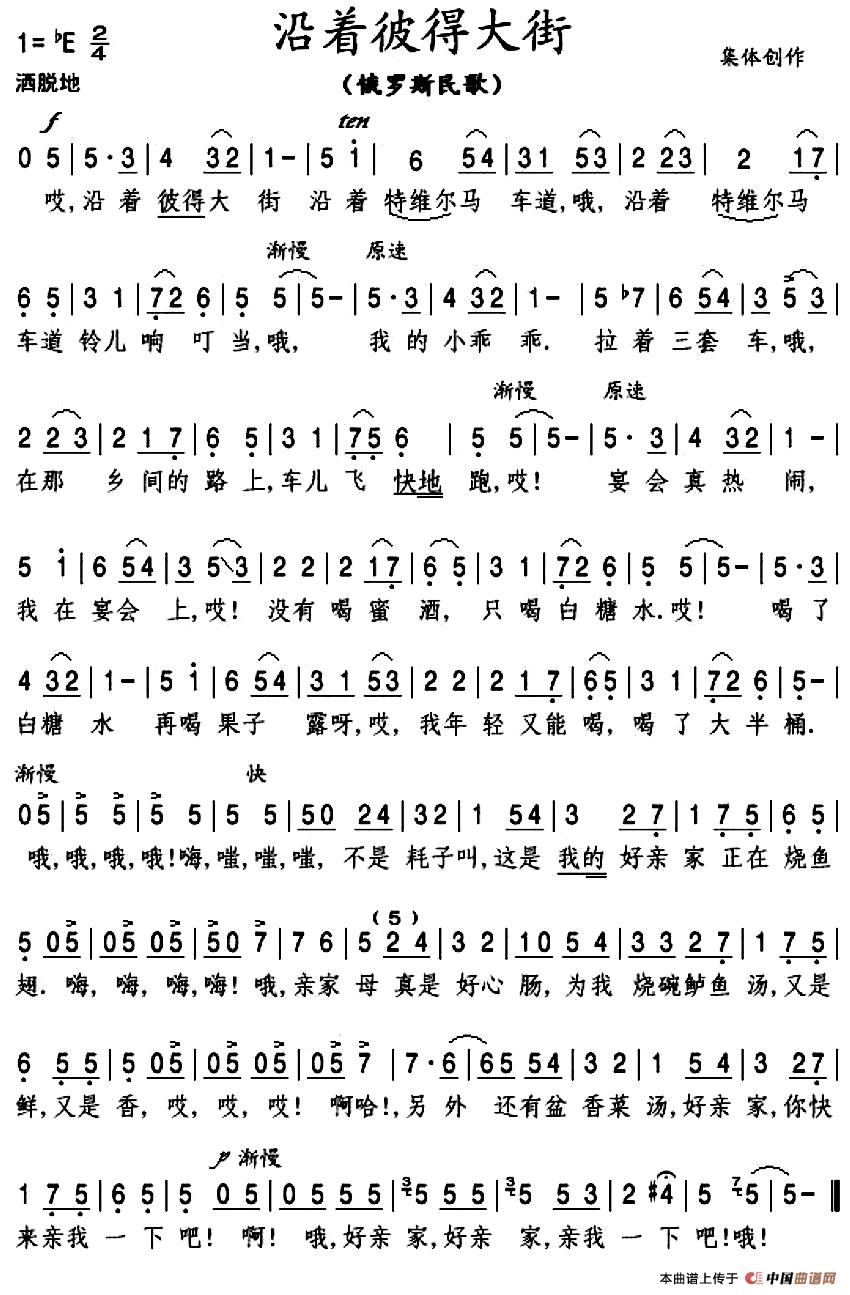 沿着彼得大街
1=♭E 2/4
集体创作
洒脱地
（俄罗斯民歌）
f ten
0 5 | 5·3 | 4 32 | 1- | 5 i | 6 54 | 31 53 | 2 23 | 2 17 |
哎,沿着彼得大街沿着特维尔马车道,哦,沿着特维尔马
渐慢 原速
6 5 | 3 1 | 72 6 | 5 5 | 5- | 5·3 | 4 32 | 1- | 5 ♭7 | 6 54 | 3 5 3 |
车道铃儿响叮当,哦,我的小乖乖.拉着三套车,哦,
渐慢 原速
2 23 | 2 17 | 6 5 | 3 1 | 75 6 | 5 5 | 5- | 5·3 | 4 32 | 1- |
在那乡间的路上,车儿飞快地跑,哎!宴会真热闹,
5 i | 6 54 | 3 53 | 2 2 | 2 17 | 6 5 | 3 1 | 72 6 | 5 5 | 5- | 5·3 |
我在宴会上,哎!没有喝蜜酒,只喝白糖水.哎!喝了
4 32 | 1- | 5 i | 6 54 | 31 53 | 2 2 | 2 17 | 65 | 3 1 | 72 6 | 5- |
白糖水再喝果子露呀,哎,我年轻又能喝,喝了大半桶.
渐慢 快
05 | 5 5 | 5 5 | 5 5 | 50 24 | 32 | 1 54 | 3 27 | 1 75 | 6 5 |
哦,哦,哦,哦!嗨,嗤,嗤,嗤,不是耗子叫,这是我的好亲家正在烧鱼
(5)
5 05 | 05 05 | 50 7 | 7 6 | 5 24 | 3 2 | 10 54 | 33 27 | 1 75 |
翅.嗨,嗨,嗨,嗨!哦,亲家母真是好心肠,为我烧碗鲈鱼汤,又是
6 55 | 5 05 | 05 05 | 05 7 | 7·6 | 65 54 | 3 2 | 1 54 | 3 27 |
鲜,又是香,哎,哎,哎!啊哈!,另外还有盆香菜汤,好亲家,你快
p 渐慢
1 75 | 6 5 | 5 05 | 05 55 | 5 5 | 5 53 | 2 #4 | 5 5 | 5- ‖
来亲我一下吧!啊!哦,好亲家,好亲家,亲我一下吧!哦!
本曲谱上传于 中国曲谱网